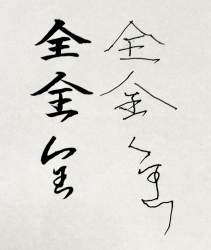 全 全
全 全
全 全